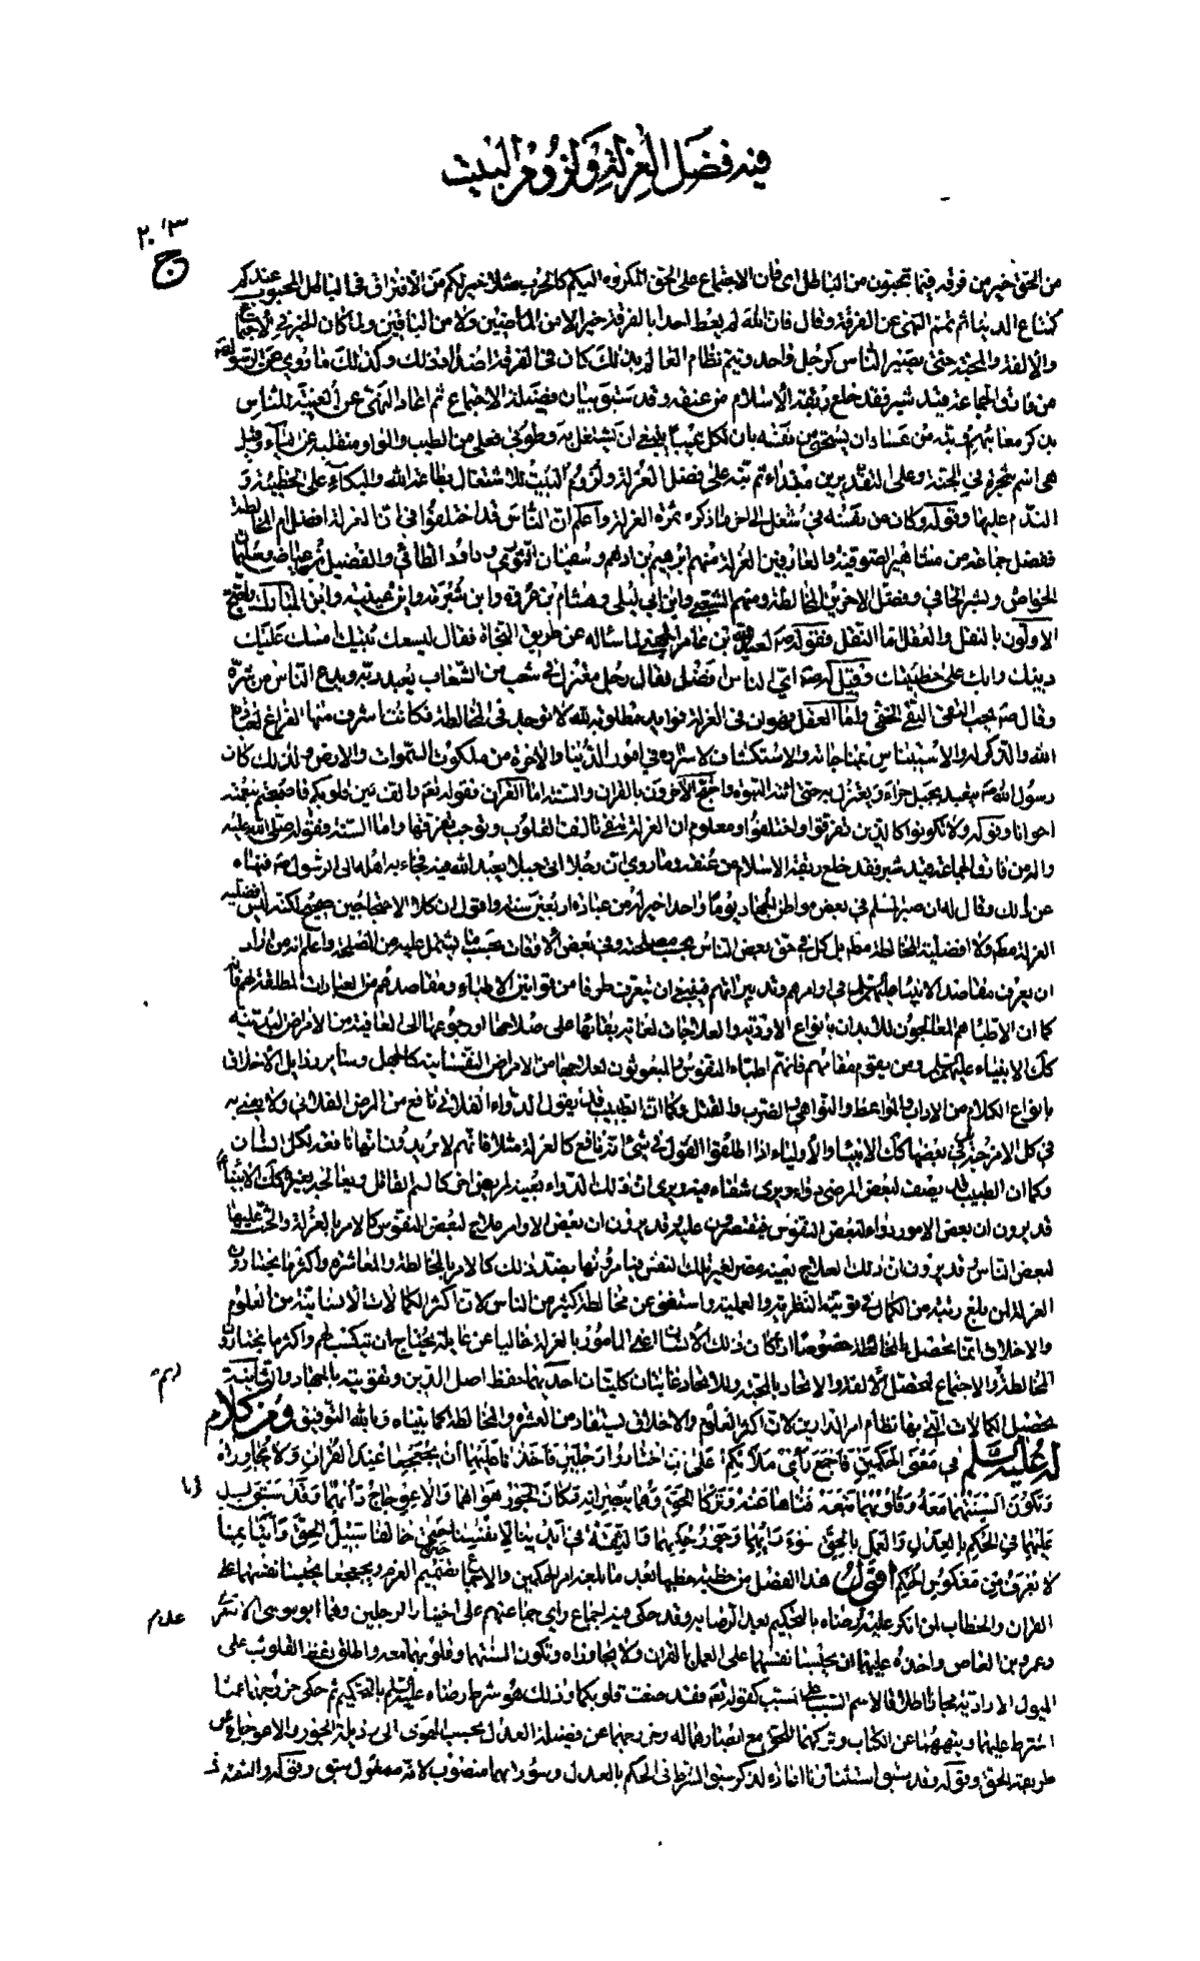 فيه فضل العزلة ولزوم البيت
٢٠٣
ج
من الحق خير من فرقة فيما تحبون من الباطل اى فان الاجتماع على الحق المكروه اليكم كالحرب مثلا خير لكم من الافتراق فى الباطل المحبوب عندكم
كمتاع الدنيا ثم تمم النهى عن الفرقة وقال فان الله لم يعط احدا بالفرقة خيرا لا من الماضين ولا من الباقين ولما كان الخير في الاجتماع
والالفة والمحبة حتى يصير الناس كرجل واحد ويتم نظام العالم بذلك كان فى الفرقة اضداد ذلك وكذلك ما روي عن الرسول
من فارق الجماعة قيد شبر فقد خلع ربقة الاسلام من عنقه وقد سبق بيان فضيلة الاجتماع ثم اعاد النهى عن الغيبة للناس
بذكر معائبهم
هى اسم شجرة في الجنة وعلى التقديرين مبتداء ثم نبّه على فضل العزلة ولزوم البيت للاشتغال بطاعة الله والبكاء على الخطيئة و
الندم عليها وقوله وكان من نفسه في شغل الى اخره ما ذكره ثمرة العزلة واعلم ان الناس قد اختلفوا فى ان العزلة افضل ام المخالطة
ففضل جماعة من مشاهير الصوفية والعارفين العزلة منهم ابرهيم بن ادهم وسفيان الثوري وداود الطائى والفضيل بن عياض وسليمان
الخواص وبشر الحافي وفضل الاخرون المخالطة ومنهم الشعبى وابن ابي ليلى وهشام بن عروة وابن شبرمة وابن عيينة وابن المبارك واحتج
الاولون بالنقل والعقل اما النقل فقوله ص لعبد الله بن عامر الجهنى لما ساله عن طريق النجاة فقال ليسعك بيتك امسك عليك
دينك وابك على خطيئتك وقيل له ص اي الناس افضل فقال رجل معتزل في شعب من الشعاب يعبد ربه ويدع الناس من شرّه
وقال ص يحب التقى النقى الخفى واما العقل فهو ان فى العزلة فوايد مطلوبة لله لا توجد فى المخالطة فكانت اشرف منها الفراغ لعبادة
الله والذكر له والاستيناس بمناجاته والاستكشاف لاسراره في امور الدنيا والاخرة من ملكوت السموات والارض ولذلك كان
رسول الله ص يتعبد بجبل حراء ويعتزل به حتى اتته النبوة واحتج الاخرون بالقران والسنة اما القران فقوله تعم والف بين قلوبكم فاصبحتم بنعمته
اخوانا وقوله ولا تكونوا كالذين تفرقوا واختلفوا ومعلوم ان العزلة تنفى تالف القلوب وتوجب تفرقها واما السنة فقوله صلى الله عليه
واله من فارق الجماعة قيد شبر فقد خلع ربقة الاسلام من عنقه وما روي ان رجلا اتى جبلا يعبد الله فيه فجاء به اهله الى الرسول ص فنهاه
عن ذلك وقال له ان صبر المسلم في بعض مواطن الجهاد يوما واحدا خير له من عبادة اربعين سنة واقول ان كلا الاحتجاجين صحيح لكنه ليس افضلية
العزلة مطم ولا افضلية المخالطة مطم بل كل في حق بعض الناس بحسب مصلحته وفي بعض الاوقات بحسب ما يشتمل عليه من المصلحة واعلم انه من اراد
ان يعرف مقاصد الانبياء عليهم السلم في اوامرهم وتدبيراتهم فينبغى ان يتعرف طرفا من قوانين الاطباء ومقاصدهم من العبارات المطلقة لهم فانه
كما ان الاطباء هم المعالجون للابدان بانواع الادوية والعلاجات لغاية بقائها على صلاحها او رجوعها الى العافية من الامراض البدنية
كك الانبياء عليهم السلم ومن يقوم مقامهم فانهم اطباء النفوس والمبعوثون لعلاجها من الامراض النفسانية كالجهل وسائر رذايل الاخلاق
بانواع الكلام من الاداب والمواعظ والنواهى والضرب والقتل وكما ان الطبيب قد يقول الدواء الفلانى نافع من المرض الفلانى ولا يعنى به
في كل الامزجة بل في بعضها كك الانبياء والاولياء اذا اطلقوا القول في شئ انه نافع كالعزلة مثلا فانهم لا يريدون انها نافعة لكل انسان
وكما ان الطبيب قد يصف لبعض المرضى دواء ويرى شفاء فيه ويرى ان ذلك الدواء بعينه لمريض اخر كالسم القاتل ويعالجه بغيره كك الانبياء
قد يرون ان بعض الامور دواء لبعض النفوس فيقتصرون عليه وقد يرون ان بعض الاوامر علاج لبعض النفوس كالامر بالعزلة والحث عليها
لبعض الناس وقد يرون ان ذلك العلاج بعينه مضر لغير تلك النفس فيامرونها بضد ذلك كالامر بالمخالطة والمعاشرة واكثر ما يختارون
العزلة لمن بلغ رتبة من الكمال في قوتيه النظرية والعملية واستغنى عن مخالطة كثير من الناس لان اكثر الكمالات الانسانية من العلوم
والاخلاق انما تحصل بالمخالطة خصوصا اذا كان ذلك الانسان اعنى المامور بالعزلة خاليا عن عائلة يحتاج ان يتكسب لهم واكثر ما يختارون
المخالطة والاجتماع لتحصل الالفة والاتحاد بالمحبة وللاتحاد غايتان كليتان احديهما حفظ اصل الدين وتقويته بالجهاد والثانية
تحصيل الكمالات التي بها نظام امر الدارين لان اكثر العلوم والاخلاق يستفاد من العشرة والمخالطة كما بيناه وبالله التوفيق ومن كلام
له عليه السلم في معنى الحكمين فاجمع راي ملائكم على ان اختاروا رجلين فاخذنا عليهما ان يجعجعا عند القران ولا يجاوزاه
وتكون السنتهما معه وقلوبهما تبعه فتاها عنه وتركا الحق وهما يبصرانه وكان الجور هواهما والاعوجاج دأبهما وقد سبق
عليهما في الحكم بالعدل والعمل بالحق سوء رأيهما وجور حكمهما والثقة فى ايدينا لانفسنا حين خالفا سبيل الحق واتيا بما
لا يعرف من معكوس الحكم اقول هذا الفصل من خطبة خطبها بعد ما بلغه امر الحكمين والاجماع تصميم العزم ويجعجعا يحبسا نفسهما على
القران والخطاب لمن انكر عليه رضاه بالتحكيم بعد الرضا به وقد حكى فيه اجماع راي جماعتهم على اختيار الرجلين وهما ابو موسى الاشعرى
وعمرو بن العاص واخذه عليهما ان يحبسا نفسهما على العمل بالقران ولا يجاوزاه وتكون السنتهما وقلوبهما معه واطلق لفظ القلوب على
الميول الارادية مجازا اطلاقا لاسم السبب على المسبب كقوله تعم فقد صغت قلوبكما وذلك هو شرط رضاه عليه السلم بالتحكيم ثم حكى خروجهما عما
اشترط عليهما وتيههما عن الكتاب وتركهما للحق مع ابصارهما له وخروجهما عن فضيلة العدل بحسب الهوى الى رذيلة الجور والاعوجاج عن
طريقة الحق وقوله وقد سبق استثناؤنا اعاده لذكر سبق الشرط فى الحكم بالعدل وسوء رايهما منصوب لانه مفعول سبق وقوله والثقة فى